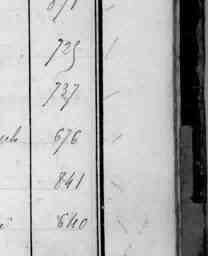 725
737
676
841
640